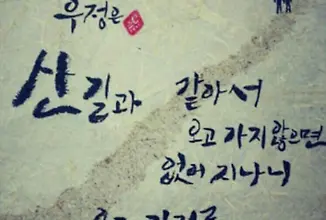 우정은
산길과 같아서
오고 가지 않으면
없어 지나니